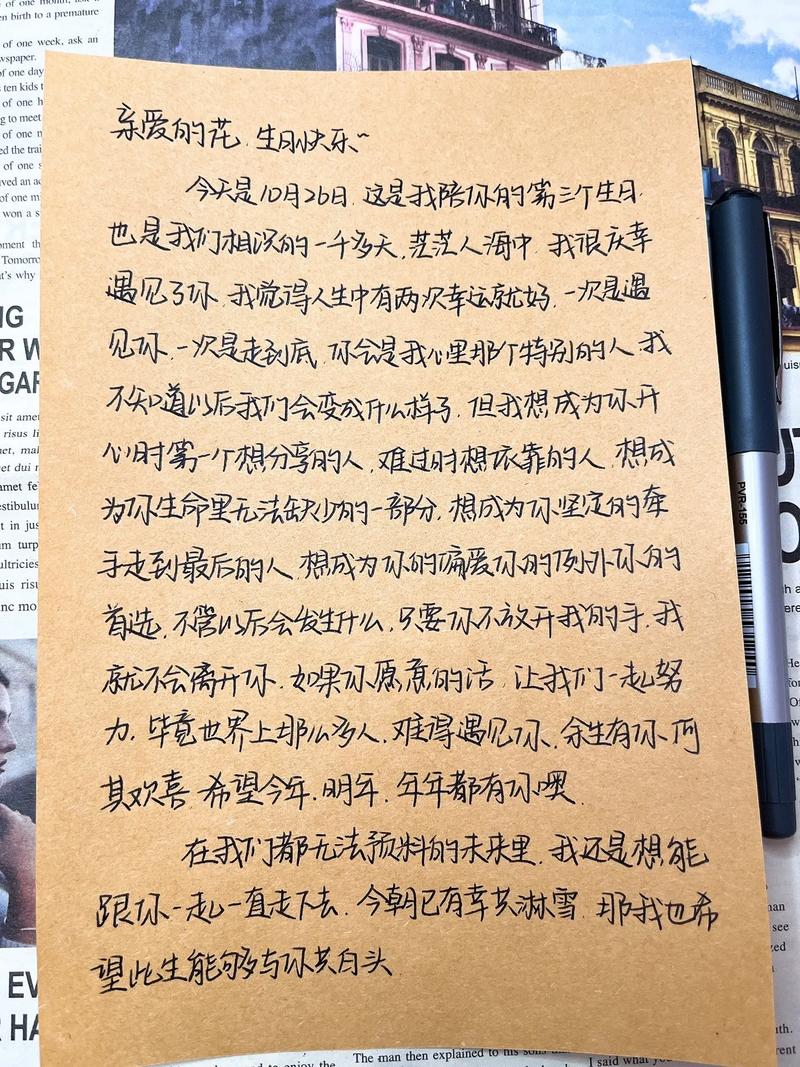 亲爱的花,生日快乐~
今天是10月26日,这是我陪你的第三个生日,
也是我们相识的一千多天,茫茫人海中,我很庆幸
遇见了你,我觉得人生中有两次幸运就好,一次是遇
见你,一次是走到底,你会是我心里那个特别的人,我
不知道以后我们会变成什么样子,但我想成为你开
心时第一个想分享的人,难过时想依靠的人,想成
为你生命里无法缺少的一部分,想成为你坚定的牵
手走到最后的人,想成为你的偏爱你的例外你的
首选,不管以后会发生什么,只要你不放开我的手,我
就不会离开你,如果你愿意的话,让我们一起努
力,毕竟世界上那么多人,难得遇见你,余生有你,何
其欢喜,希望今年,明年,年年都有你噢,
在我们都无法预料的未来里,我还是想能
跟你一起一直走下去,今朝已有幸共淋雪,那我也希
望此生能够与你共白头
PVR-155
The man then explained to his sons that